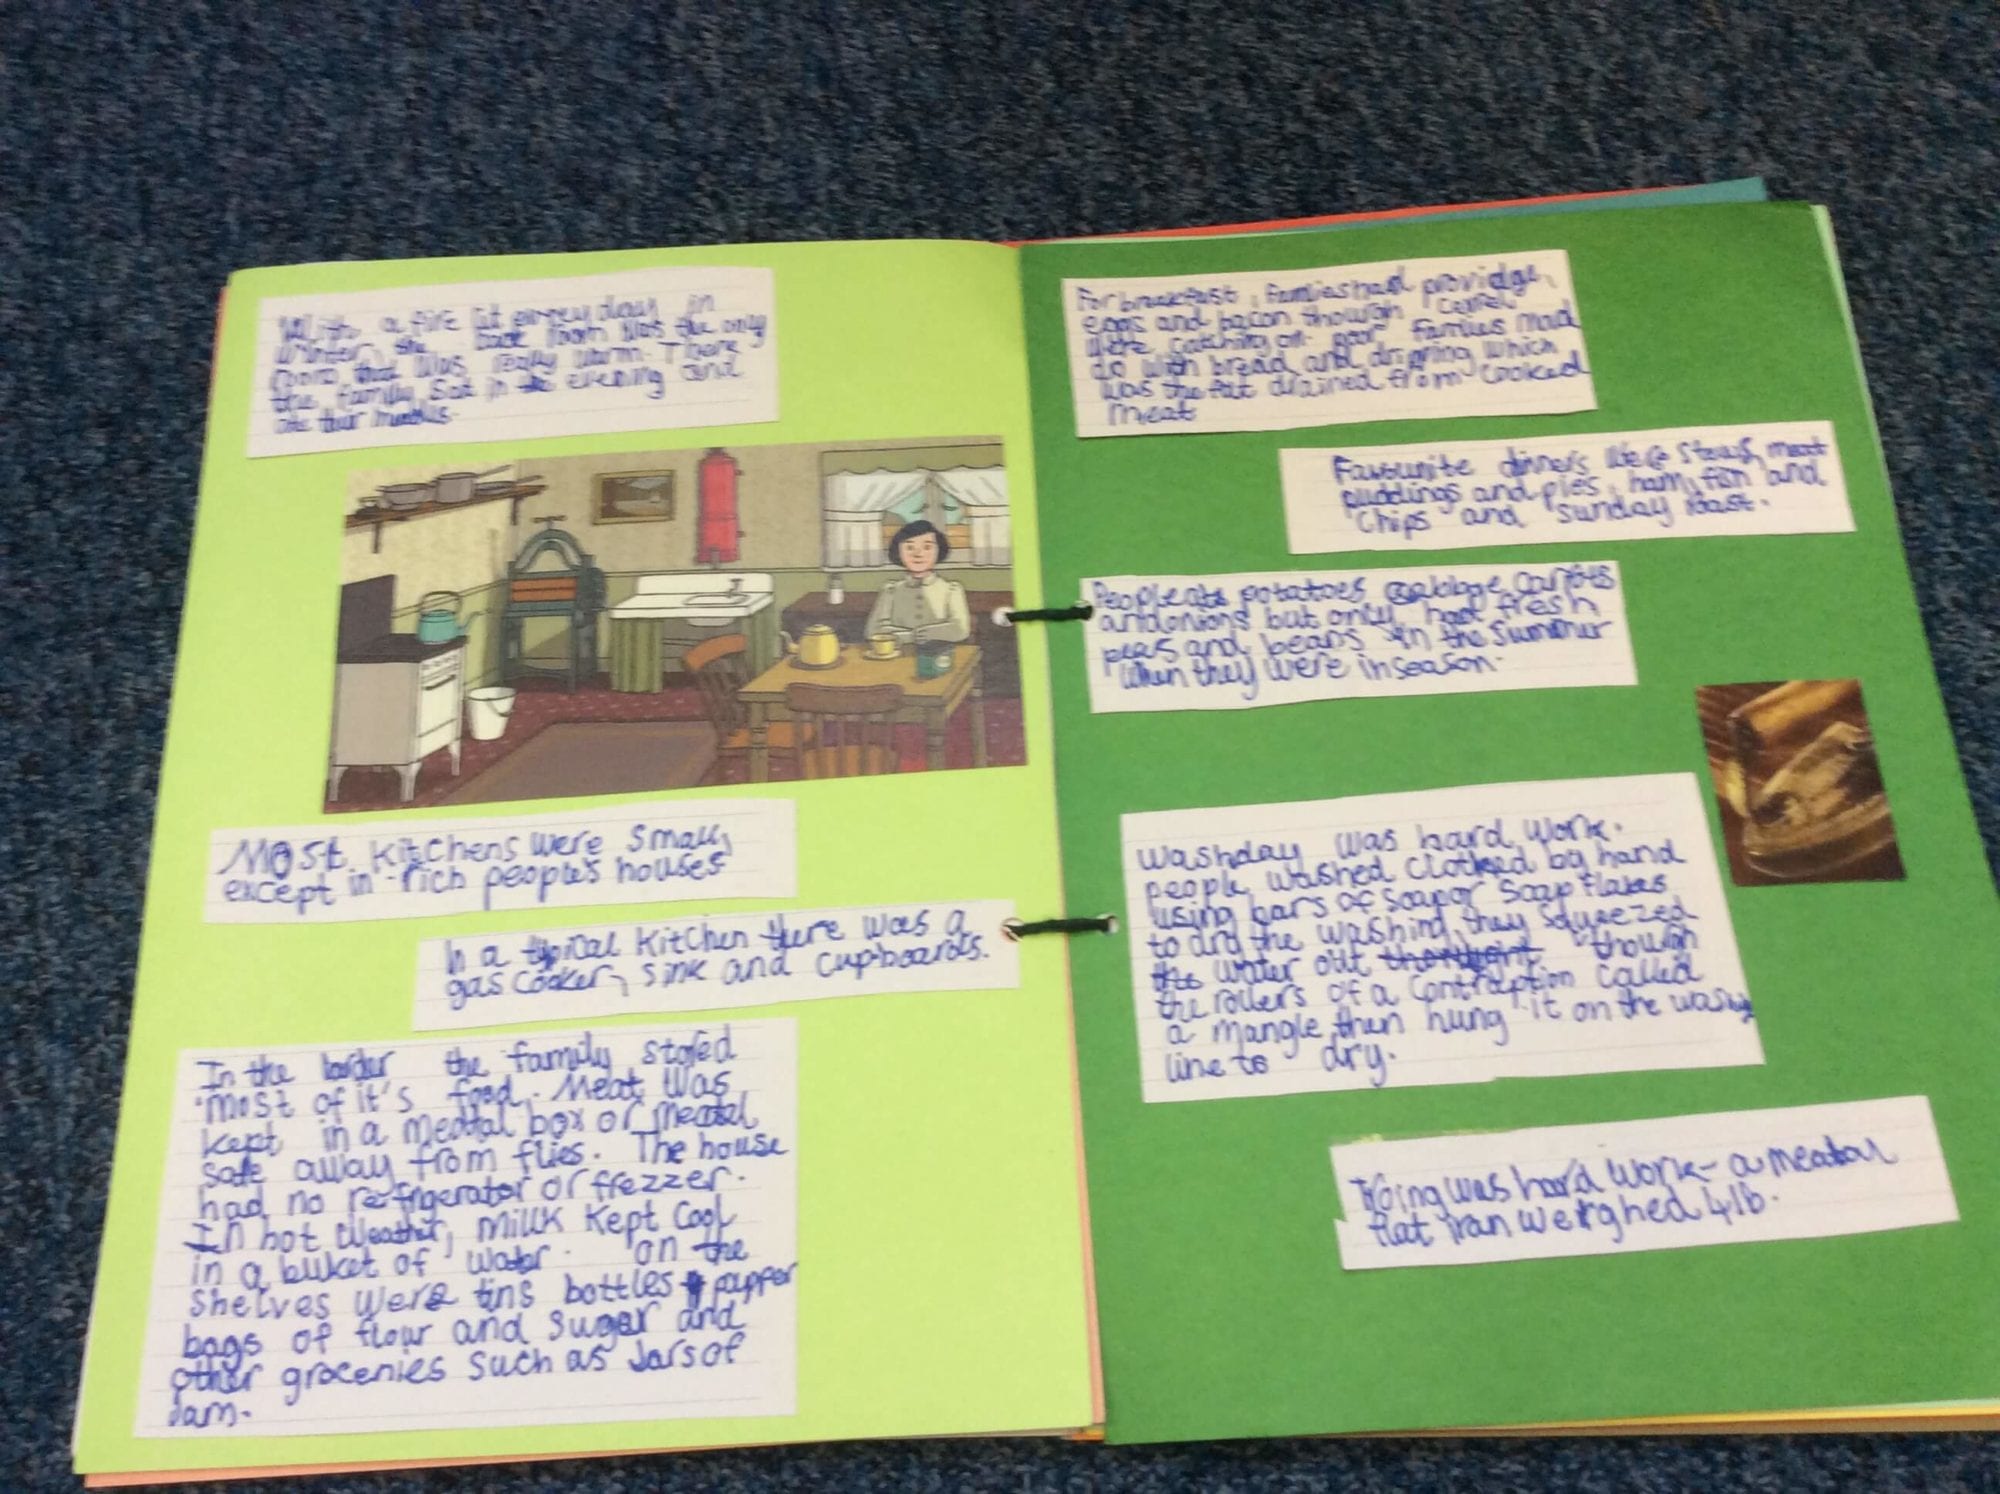 With a fire lit every day in
winter, the back room was the only
room that was really warm. There
the family sat in the evening and
ate their
Most Kitchens were small,
except in rich people's houses
In a typical Kitchen there was a
gas cooker, sink and cupboards.
In the larder the family stored
most of it's food. Meat was
kept in a meatal box or meatal
safe away from flies. The house
had no refrigerator or frezzer.
In hot weather, millk kept cool
in a buket of water. on the
shelves were tins bottles papper
bags of flour and sugar and
other groceries such as Jars of
Jam.
For breakfast, families had providge,
eggs and bacon though
were catching on. poor families mad
do with bread and driping which
was the fat drained from cooked
meat
Favourite dinners were stews, meat
puddings and pies, ham, fish and
chips and sunday roast.
People ate potatoes cabbage carrots
and onions but only had fresh
peas and beans in the summer
when they were in season.
Washday was hard work.
people washed clothed by hand
using bars of soap or soap flakes
to drd the washing they squeezed
the water out though
the rollers of a contraption called
a mangle then hung it on the
line to dry.
Iroing was hard work - a meatal
flat iran weighed 4lb.